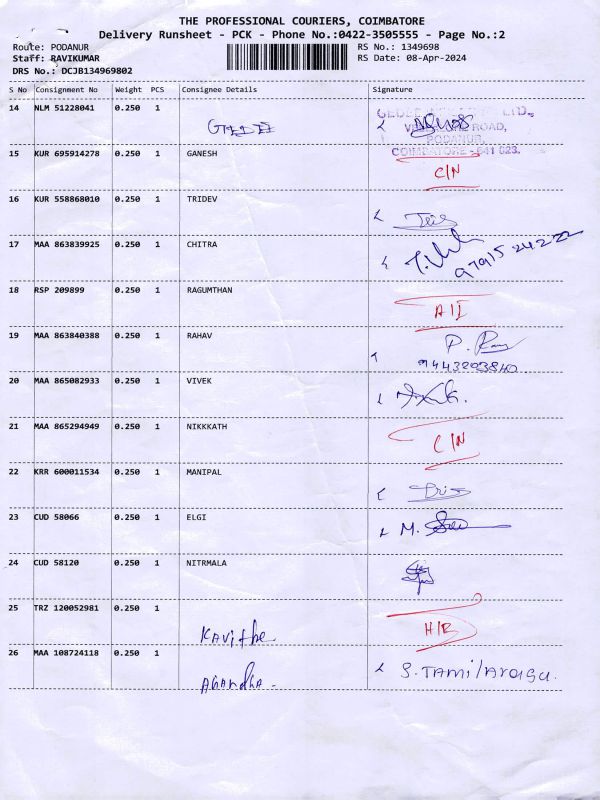 THE PROFESSIONAL COURIERS, COIMBATORE
Delivery Runsheet - PCK - Phone No.:0422-3505555 - Page No.:2
Route: PODANUR
RS No.: 1349698
Staff: RAVIKUMAR
RS Date: 08-Apr-2024
DRS No.: DCJB134969802
S No Consignment No Weight PCS Consignee Details Signature
14 NLM 51228041 0.250 1
ROAD,
PODANUR,
COIMBATORE - 641 023.
15 KUR 695914278 0.250 1 GANESH
C/N
16 KUR 558868010 0.250 1 TRIDEV
17 MAA 863839925 0.250 1 CHITRA
97915 24222
18 RSP 209899 0.250 1 RAGUMTHAN
19 MAA 863840388 0.250 1 RAHAV
9443203840
20 MAA 865082933 0.250 1 VIVEK
21 MAA 865294949 0.250 1 NIKKKATH
C/N
22 KRR 600011534 0.250 1 MANIPAL
23 CUD 58066 0.250 1 ELGI
24 CUD 58120 0.250 1 NITRMALA
25 TRZ 120052981 0.250 1
Kavitha
26 MAA 108724118 0.250 1
S. TAMilArasu.
Anandha.